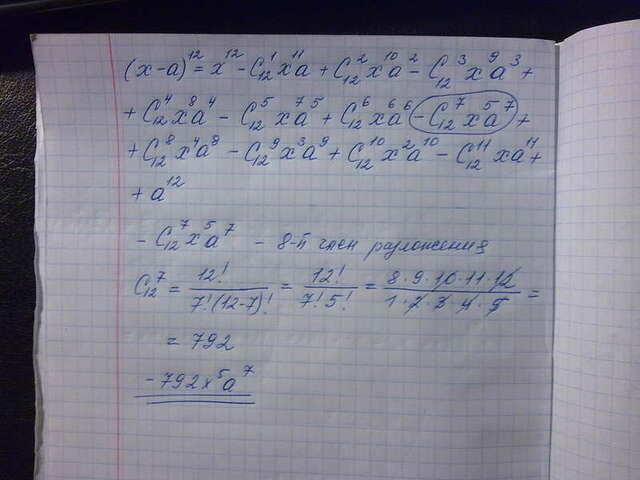 (x-a)¹² = x¹² - C₁₂¹x¹¹a + C₁₂²x¹⁰a² - C₁₂³x⁹a³ +
+ C₁₂⁴x⁸a⁴ - C₁₂⁵x⁷a⁵ + C₁₂⁶x⁶a⁶ - C₁₂⁷x⁵a⁷ +
+ C₁₂⁸x⁴a⁸ - C₁₂⁹x³a⁹ + C₁₂¹⁰x²a¹⁰ - C₁₂¹¹xa¹¹ +
+ a¹²
- C₁₂⁷x⁵a⁷ - 8-й член разложения
C₁₂⁷ = 12!/7!(12-7)! = 12!/7!5! = 8·9·10·11·12/1·2·3·4·5 =
= 792
-792x⁵a⁷